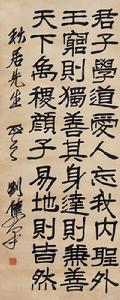 君子學道愛人忘我內聖外
王窮則獨善其身達則兼善
天下禹稷顏子易地則皆然
秋居先生
劉